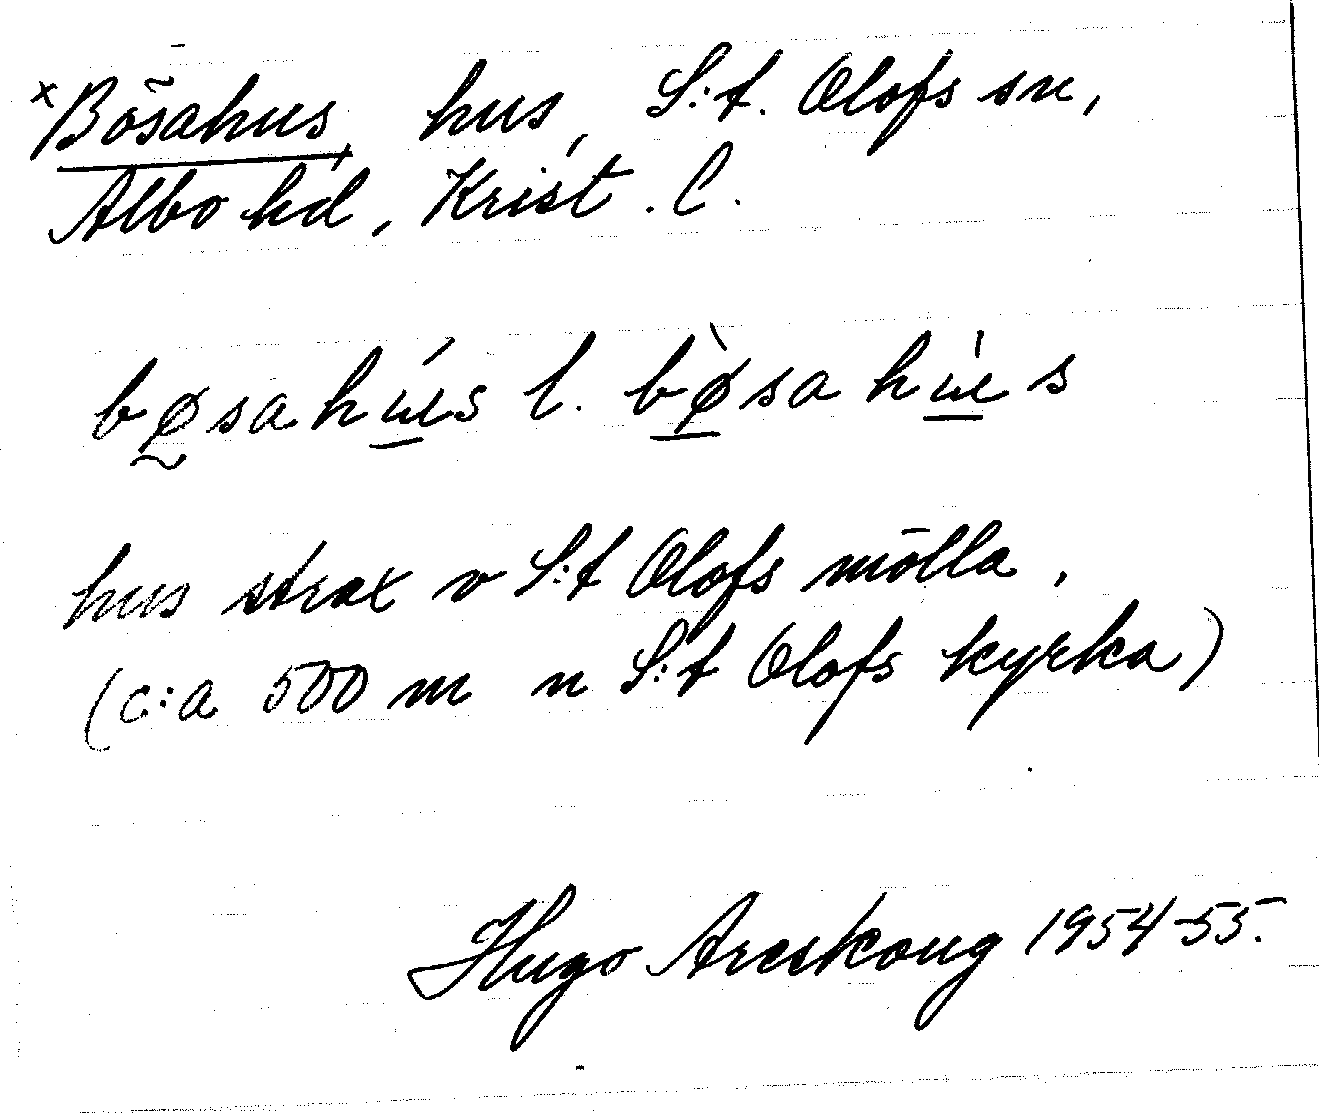 ×Bösahus, hus, S:t. Olofs sn,
Albo hd, Krist. l.
bøsahɯ́s l. bø̀sahɯ̀s
hus strax v S:t Olofs mölla,
(c:a 500 m n S:t Olofs kyrka)
Hugo Areskoug 1954-55.